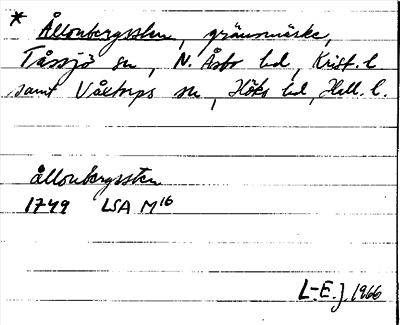 * Ållonbergssten, gränsmärke,
Tåssjö sn, N. Åsbo hd, Krist. l.
samt Våxtorps sn, Höks hd, Hall. l.
ållonbergssten
1749 LSA M16
L-E. J. 1966